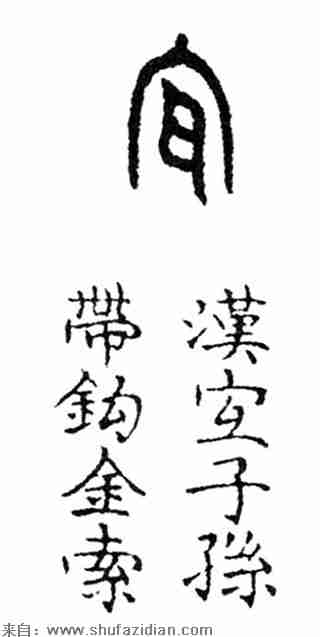 宜
漢宜子孫
帶鈎金索
来自：www.shufazidian.com